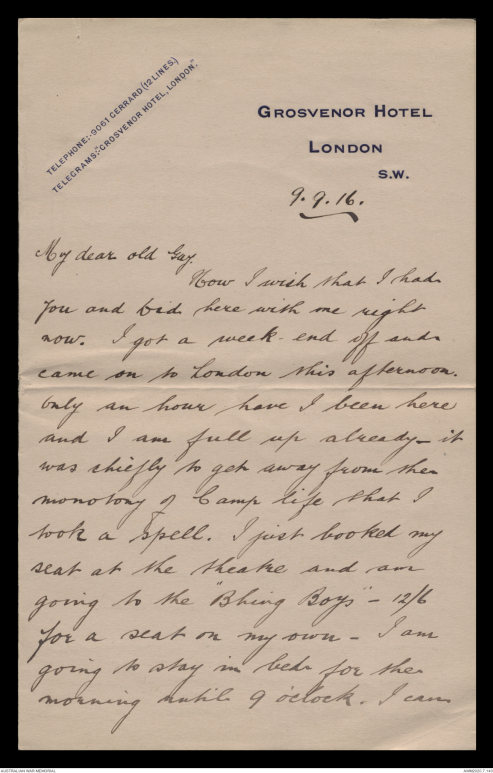 TELEPHONE:-9061 GERRARD (12 LINES.)
TELEGRAMS:-"GROSVENOR HOTEL, LONDON."
GROSVENOR HOTEL
LONDON
S.W.
9.9.16.
My dear old Gay.
How I wish that I had
you and kid here with me right
now. I got a week-end off and
came on to London this afternoon.
Only an hour have I been here
and I am full up already - it
was chiefly to get away from the
monotony of Camp life that I
took a spell. I just booked my
seat at the theatre and am
going to the "Bhing Boys" - 12/6
for a seat on my own - I am
going to stay in bed for the
morning until 9 o'clock. I can
AUSTRALIAN WAR MEMORIAL